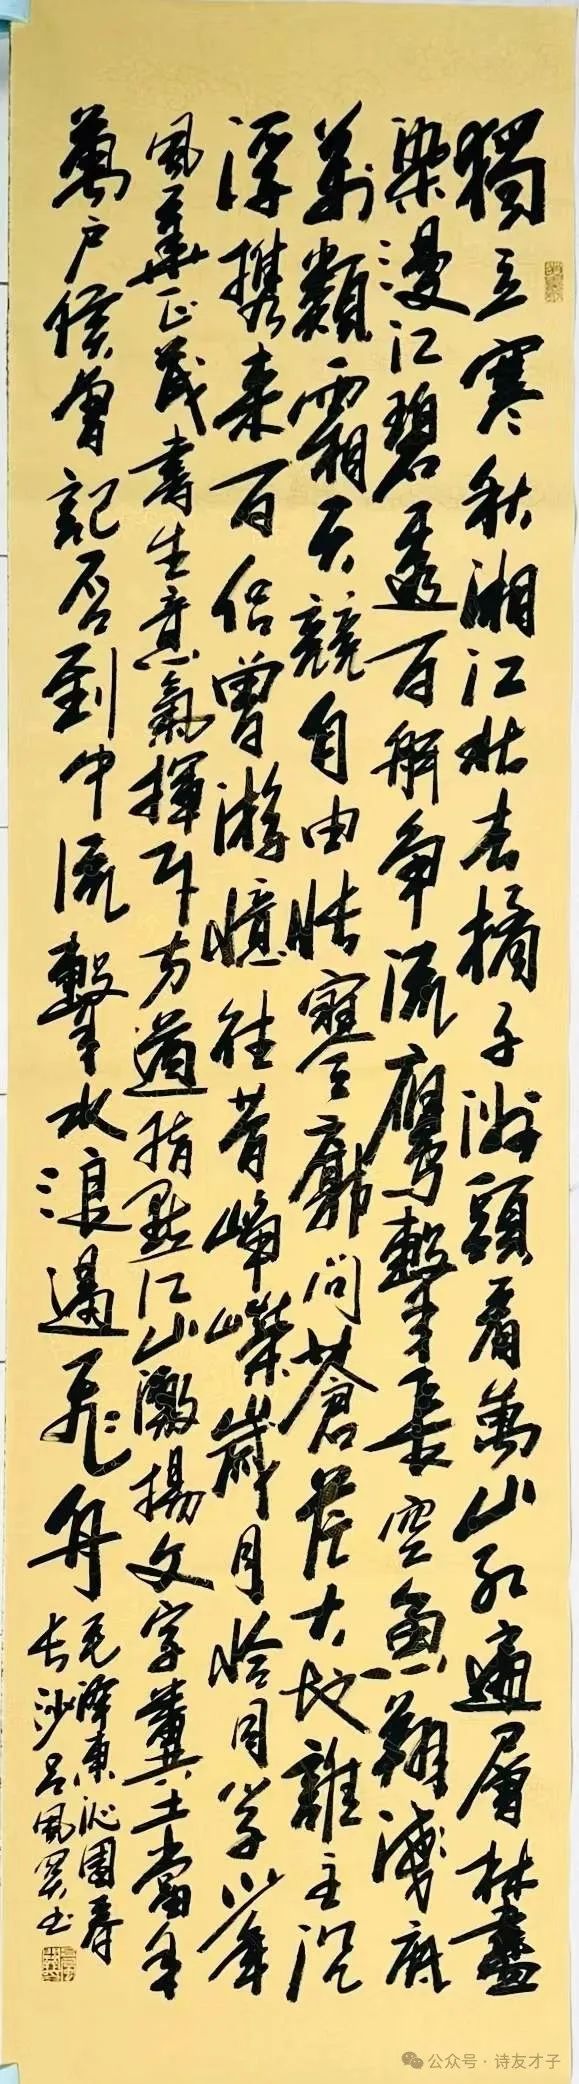 獨立寒秋湘江北去橘子洲頭看萬山红遍層林盡
染漫江碧透百舸争流鷹擊長空魚翔淺底
萬類霜天競自由悵寥廓問蒼茫大地誰主沉
浮携来百侣曾游憶往昔崢嶸歲月恰同学少年
風華正茂書生意氣揮斥方遒指點江山激揚文字糞土當年
萬户侯曾記否到中流擊水浪遏飛舟
毛澤東沁園春
长沙吕風书
公众号·诗友才子